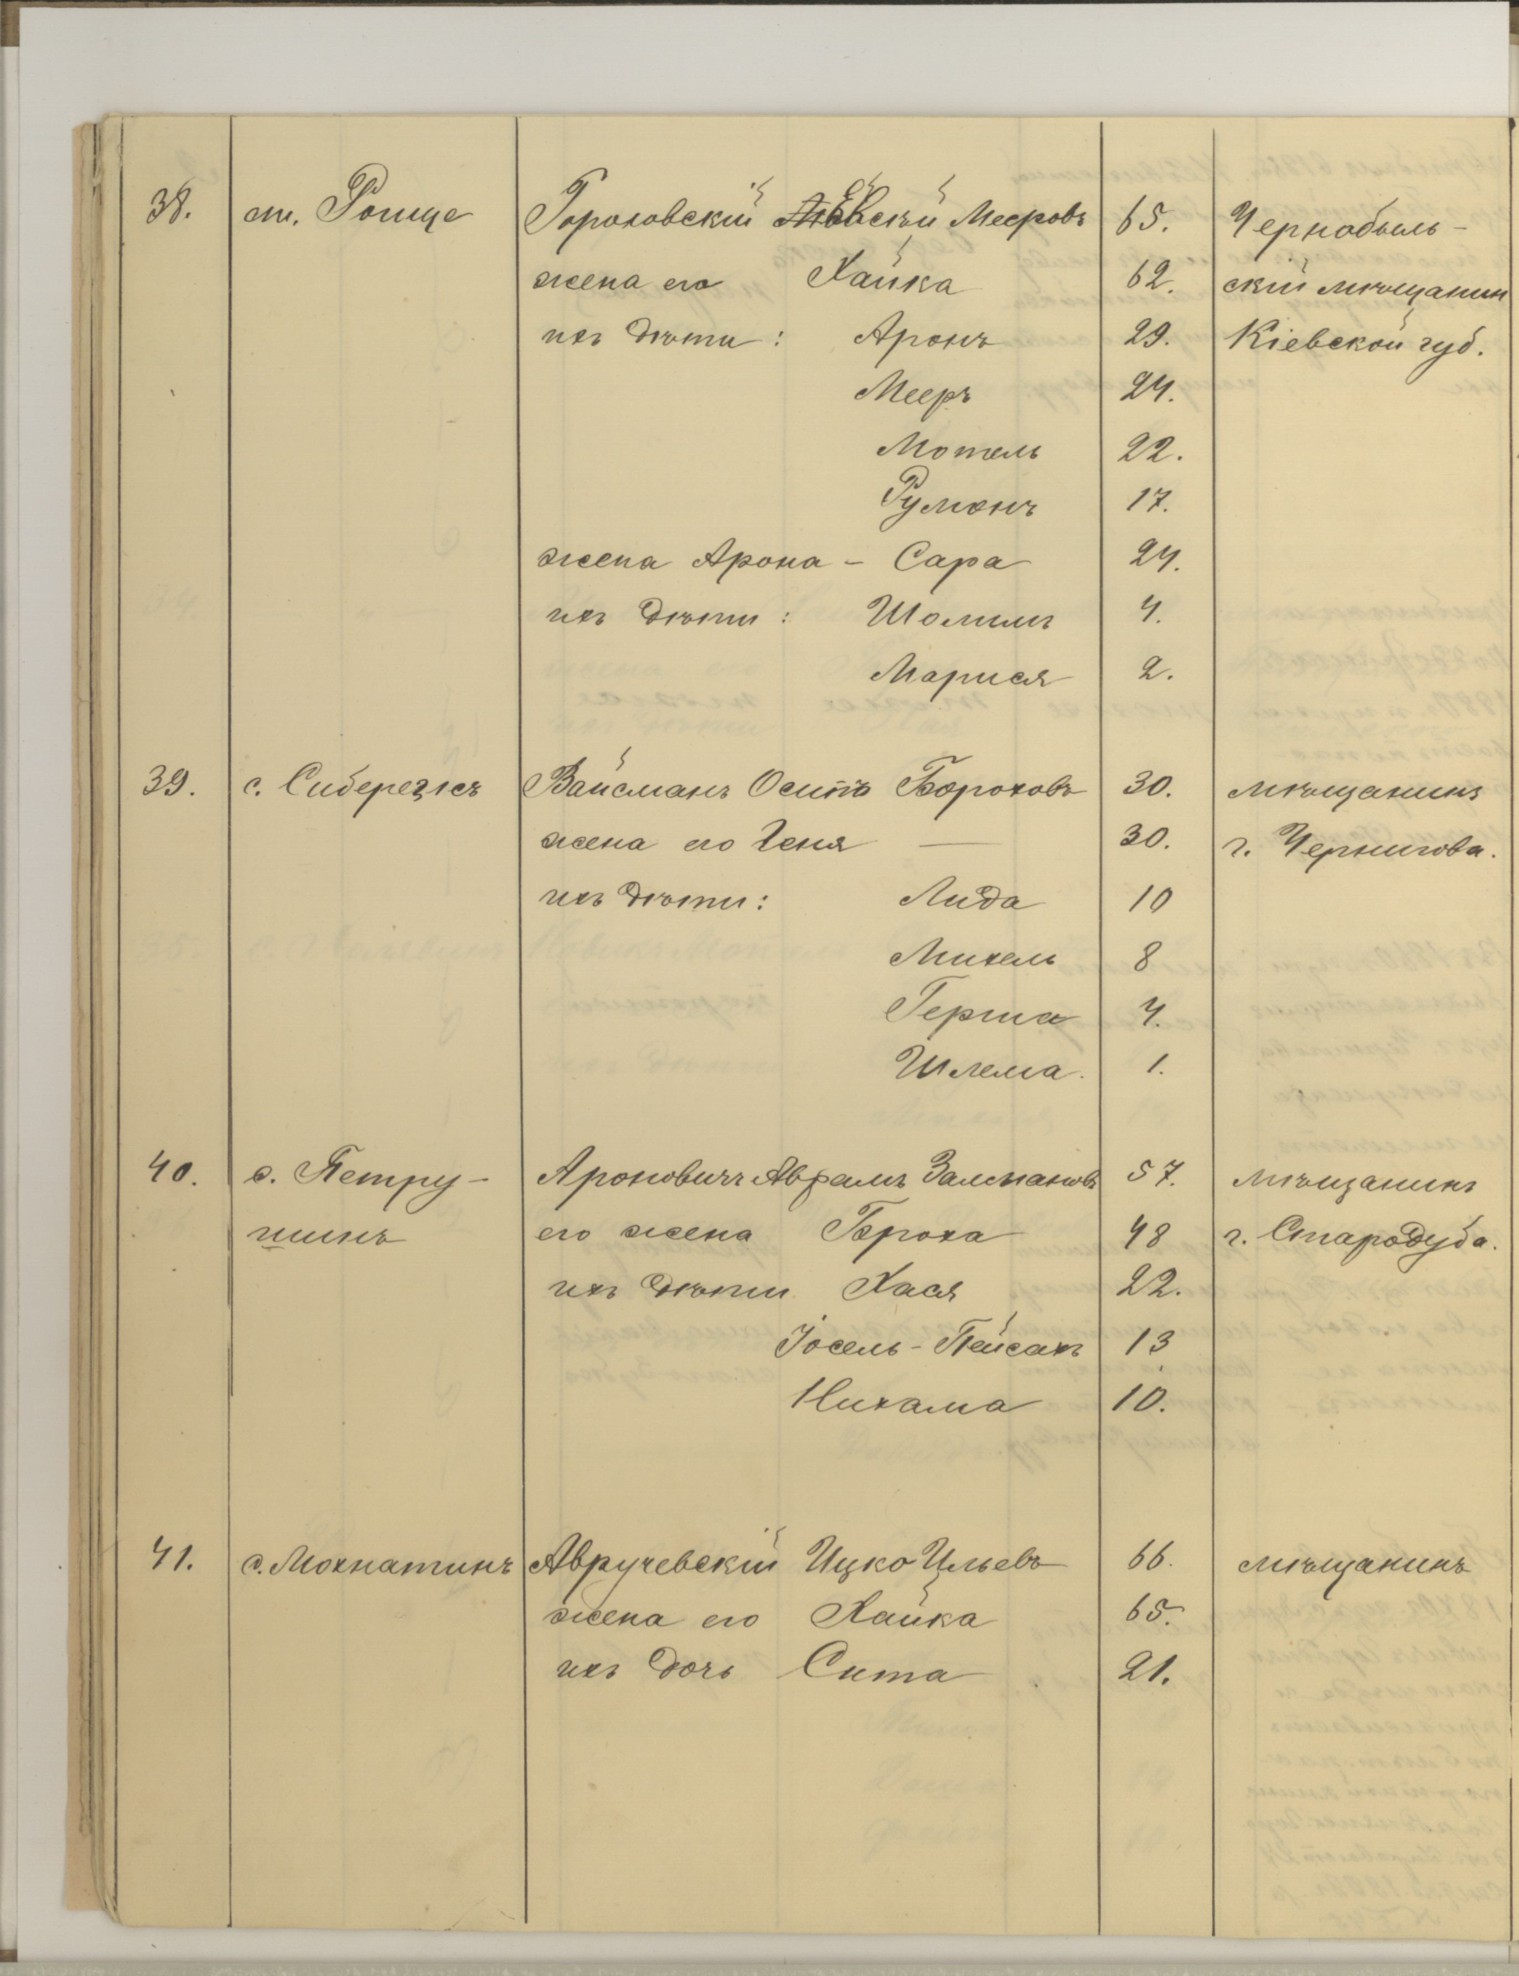 38. ст. Рогище Гороховскій Мееровъ 65. Чернобыль-
жена его Хайка 62. скій мѣщанин
ихъ дѣти: Аронъ 29. Кіевской губ.
Мееръ 24.
Мотель 22.
Румонъ 17.
жена Арона - Сара 24.
ихъ дѣти: Шолимъ 4.
Марися 2.
39. с. Сиберезкъ Вайсманъ Осипъ Бороховъ 30. мѣщанинъ
жена его Геня — 30. г. Чернигова.
ихъ дѣти: Лида 10
Михель 8
Герша 4.
Шлема. 1.
40. с. Петру- Ароновичъ Аврамъ Залмановъ 57. мѣщанинъ
шинъ его жена Броха 48 г. Стародуба.
ихъ дѣти Хася 22.
Іосель-Пейсахъ 13
Нихама 10.
41. с. Мохнатинъ Авручевскій Ицко Ильевъ 66. мѣщанинъ
жена его Хайка 65.
ихъ дочь Сита 21.